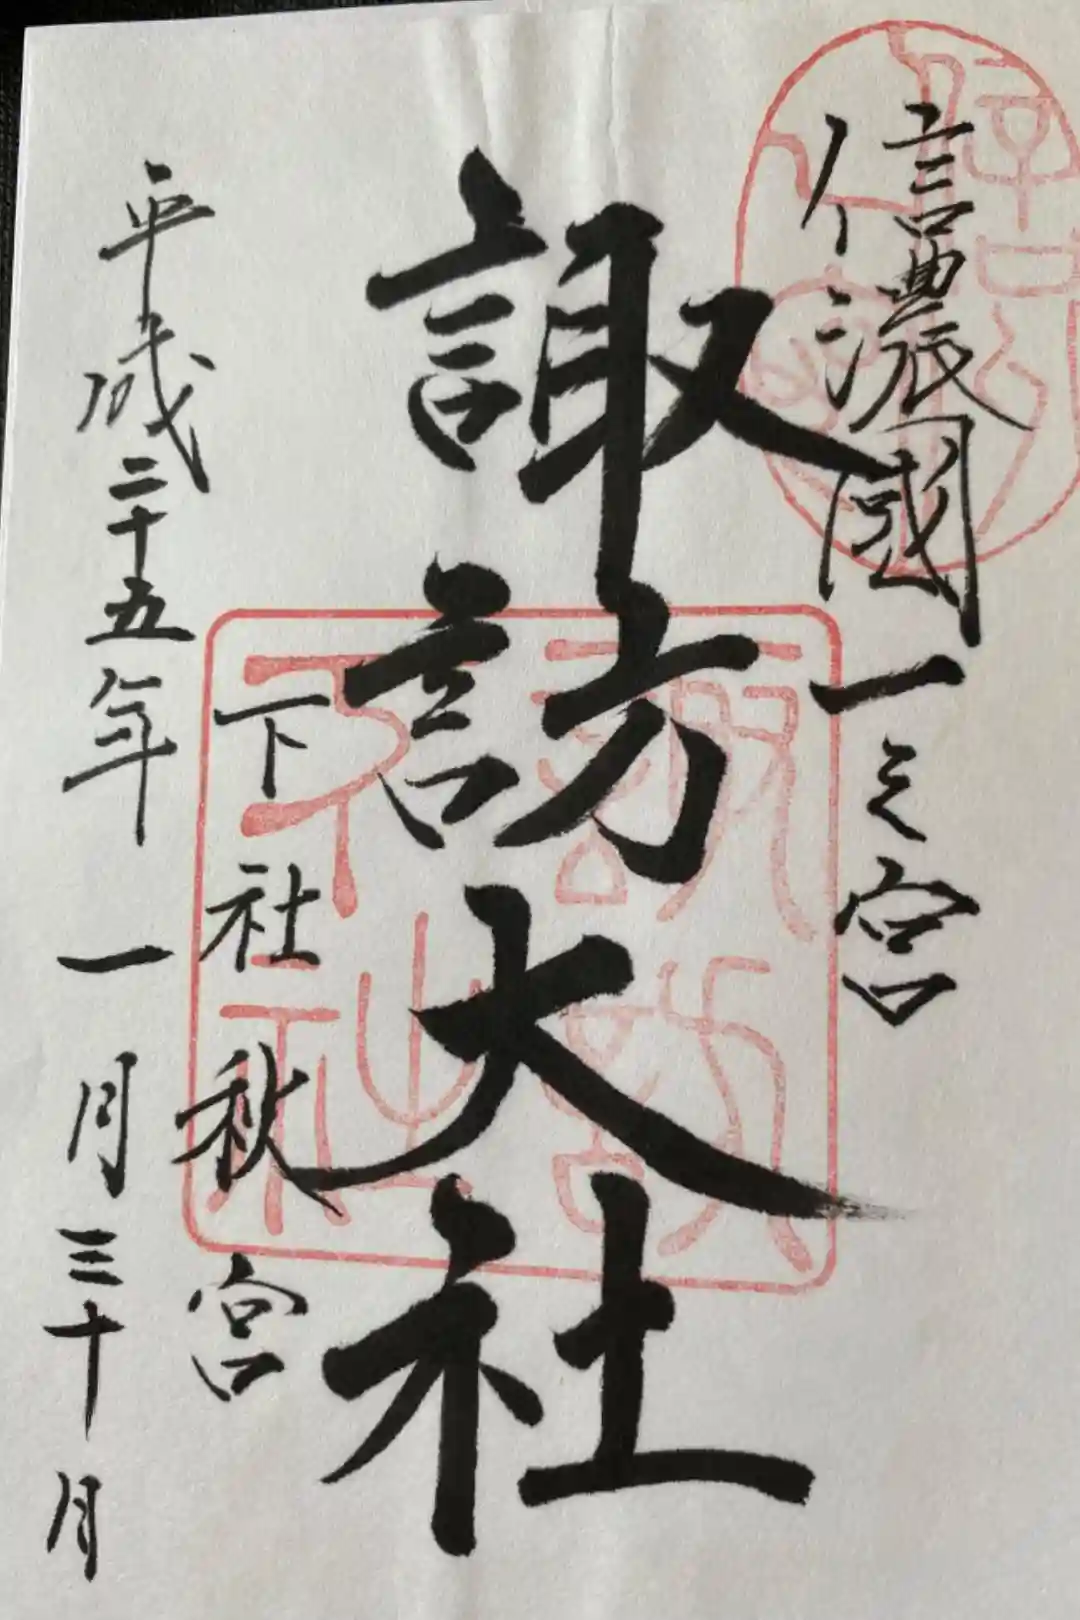 信濃國一之宮
諏訪大社
下社秋宮
平成二十五年一月三十月